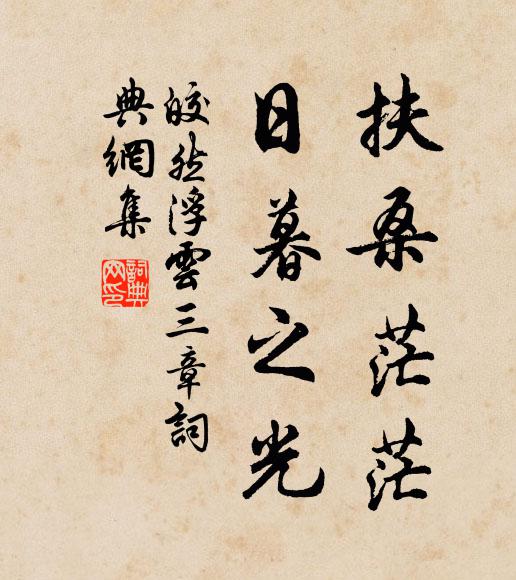 扶桑茫茫
日暮之光
皎然浮雲三章詞
典網集
詞典
网印